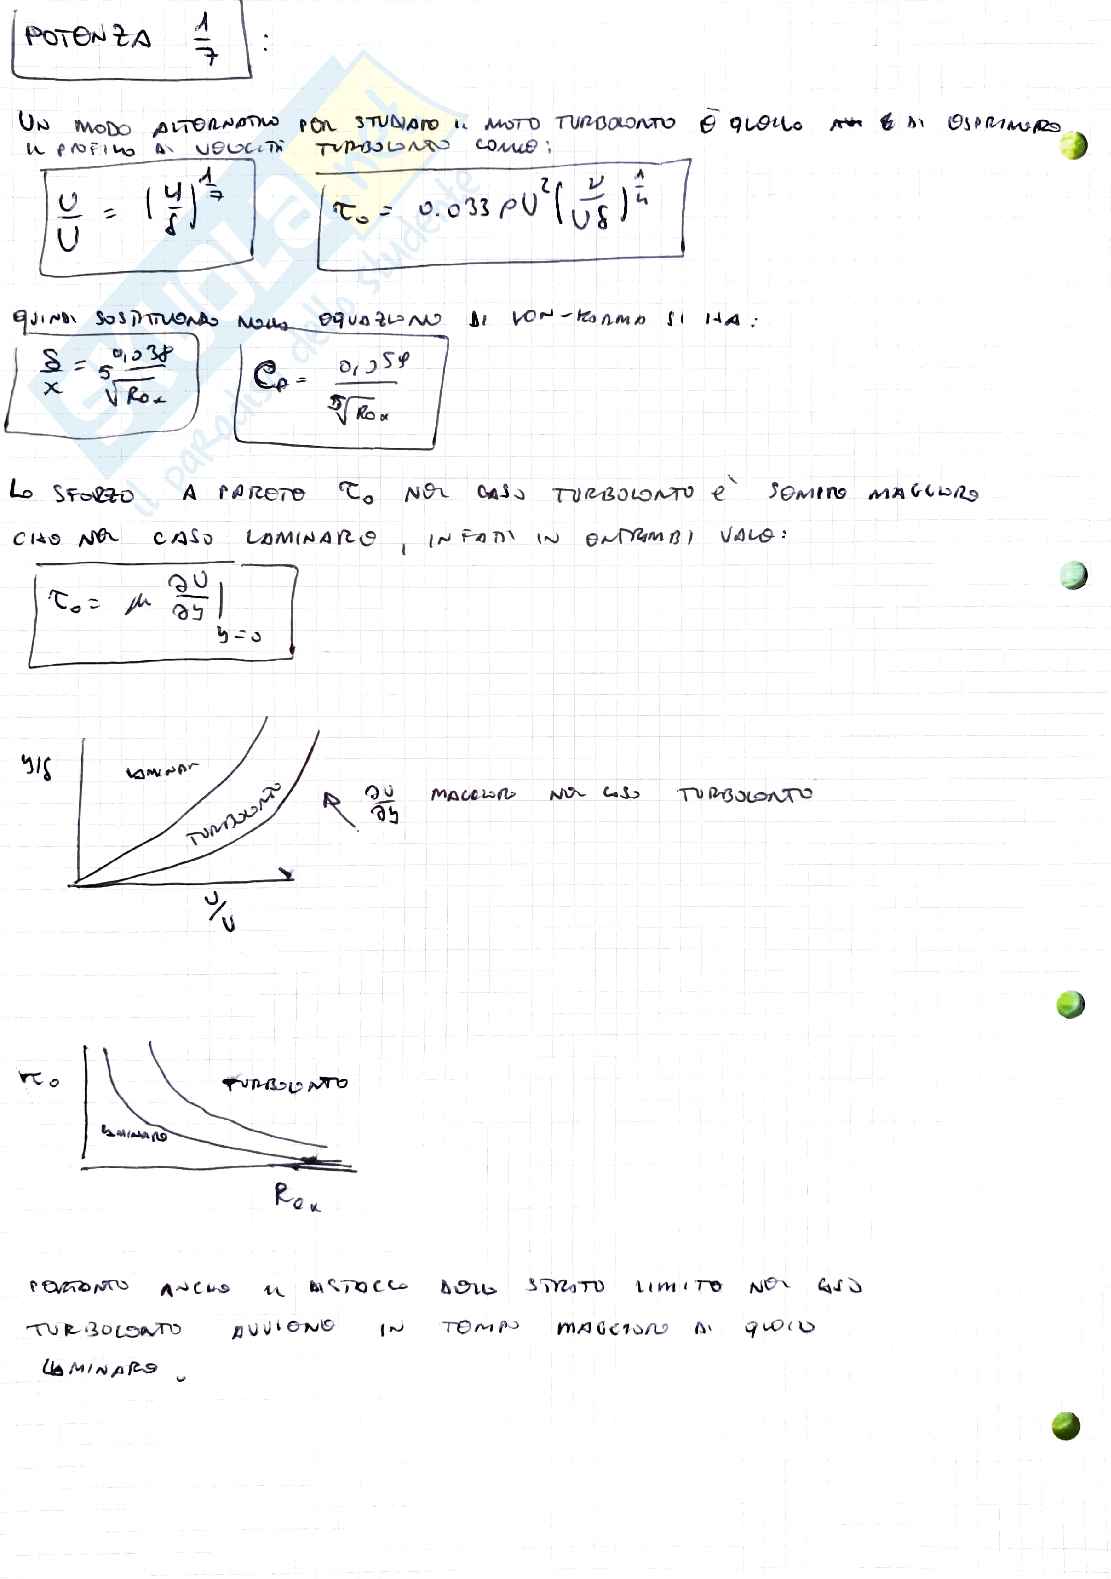 POTENZA 1/7 :
UN MODO ALTERNATIVO PER STUDIARE IL MOTO TURBOLENTO È QUELLO DI ESPRIMERE
IL PROFILO DI VELOCITÀ TURBOLENTO COME:
u/U = (y/δ)^1/7    τ₀ = 0.033 ρU² (ν/Uδ)^1/4
QUINDI SOSTITUENDO NELLA EQUAZIONE DI VON-KARMA SI HA:
δ/x = 0,038/⁵√Reₓ    = 0,059/⁵√Reₓ
LO SFORZO A PARETE τ₀ NEL CASO TURBOLENTO È SEMPRE MAGGIORE
CHE NEL CASO LAMINARE, INFATTI IN ENTRAMBI VALE:
τ₀ = μ ∂U/∂y |y=0
y/δ
LAMINAR
TURBOLENTO
∂U/∂y MAGGIORE NEL CASO TURBOLENTO
u/U
τ₀
TURBOLENTO
LAMINARE
Reₓ
PERTANTO ANCHE IL DISTACCO DELLO STRATO LIMITE NEL CASO
TURBOLENTO AVVIENE IN TEMPO MAGGIORE DI QUELLO
LAMINARE.
SKUOLA.net
il paradiso dello studente